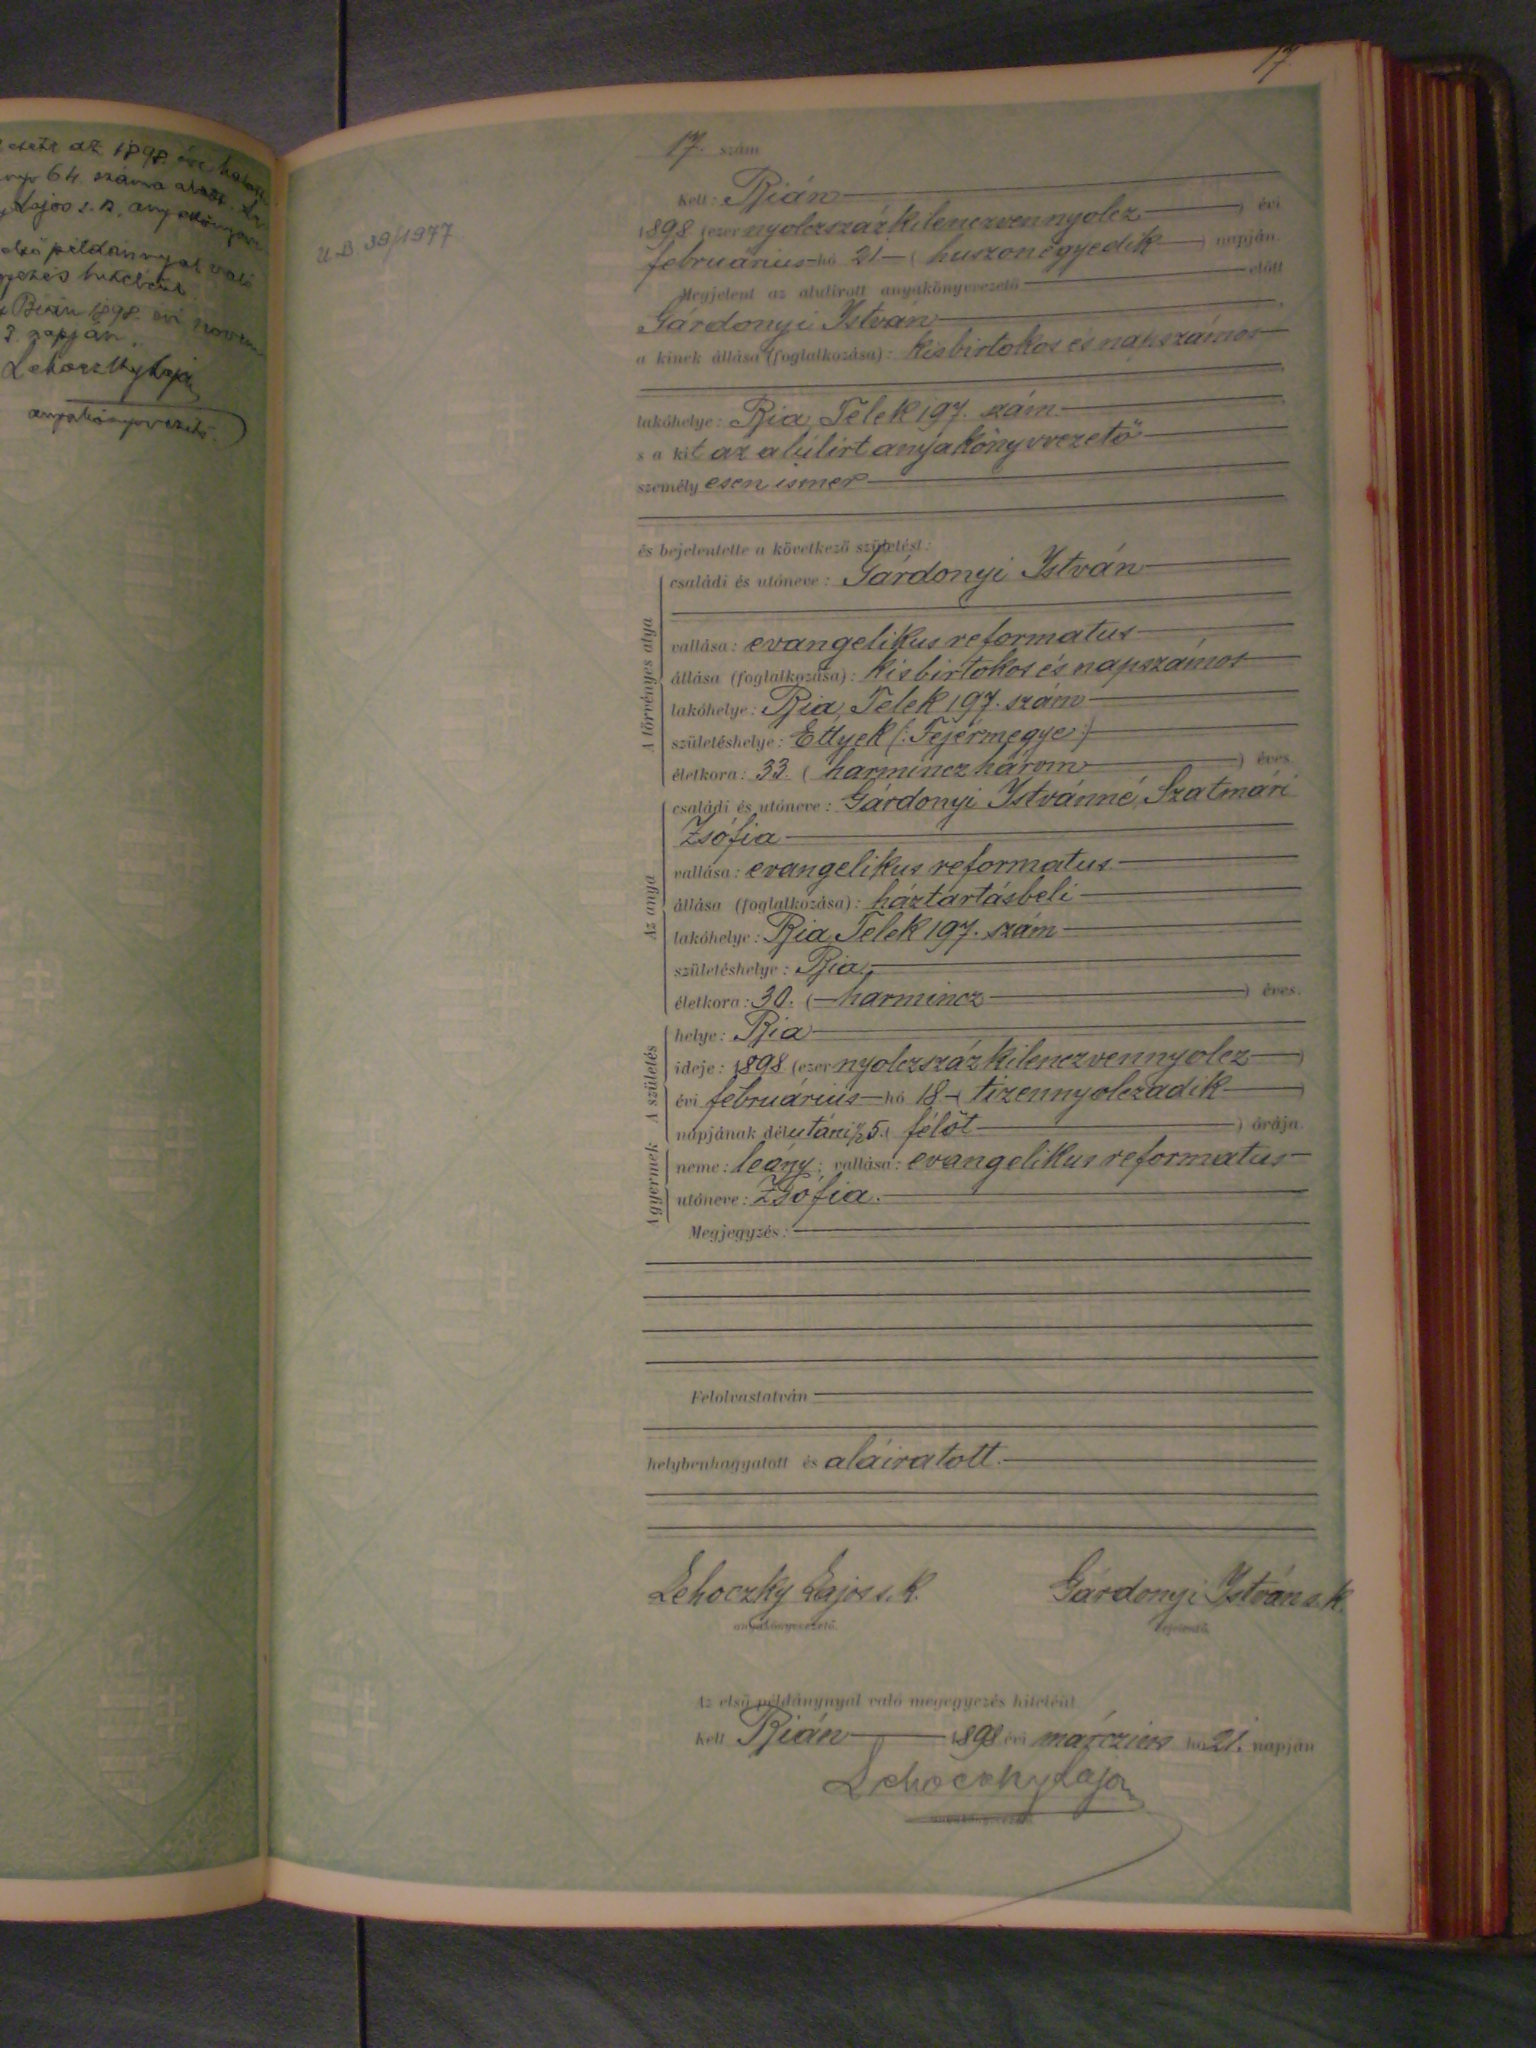 az 1898. évi
64. száma alatt
Lajos s. k. anyakönyvv
első példánnyal való
Bián 1898. évi novem
3. napján.
Lehoczky Lajos
anyakönyvvezető.
17
U. B. 39/1977.
17. szám
Kelt: Bián
1898 (ezernyolczszázkilenczvennyolcz ) évi
februárius hó 21 (huszonegyedik ) napján.
Megjelent az alulirott anyakönyvvezető előtt
Gárdonyi István
a kinek állása (foglalkozása): kisbirtokos és napszámos
lakóhelye: Bia, Telek 197. szám
s a kit az alúlirt anyakönyvvezető
személyesen ismer
és bejelentette a következő születést:
A törvényes atya
családi és utóneve: Gárdonyi István
vallása: evangelikus reformatus
állása (foglalkozása): kisbirtokos és napszámos
lakóhelye: Bia, Telek 197. szám
születéshelye: Ettyek (: Fejérmegye :)
életkora: 33. (harminczhárom ) éves.
Az anya
családi és utóneve: Gárdonyi Istvánné, Szatmári
Zsófia
vallása: evangelikus reformatus
állása (foglalkozása): háztartásbeli
lakóhelye: Bia, Telek 197. szám
születéshelye: Bia,
életkora: 30. ( harmincz ) éves.
A születés
helye: Bia
ideje: 1898 (ezernyolczszázkilenczvennyolcz )
évi februárius hó 18 (tizennyolczadik )
napjának délutáni ½5. (félöt ) órája.
A gyermek
neme: leány; vallása: evangelikus reformatus
utóneve: Zsófia.
Megjegyzés:
Felolvastatván
helybenhagyatott és aláiratott.
Lehoczky Lajos s. k. Gárdonyi István s. k.
anyakönyvvezető. bejelentő.
Az első példánynyal való megegyezés hiteléül
Kelt Bián 1898 évi márczius hó 21. napján
Lehoczky Lajos
anyakönyvvezető.